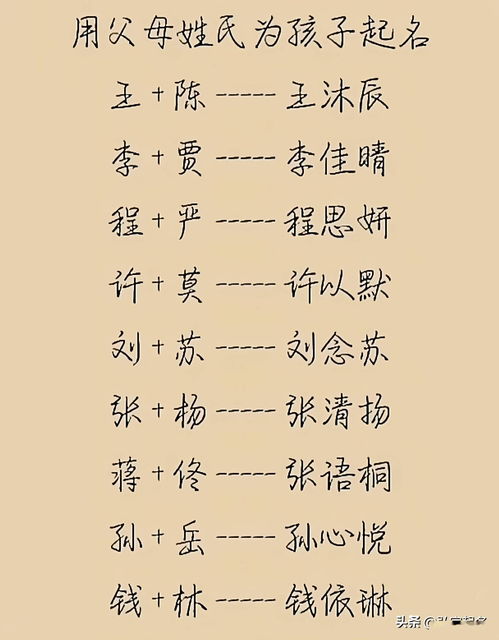 用父母姓氏为孩子起名
王+陈-----王沐辰
李+贾-----李佳晴
程+严-----程思妍
许+莫-----许以默
刘+苏-----刘念苏
张+杨-----张清扬
蒋+佟-----张语桐
孙+岳-----孙心悦
钱+林-----钱依琳
头条